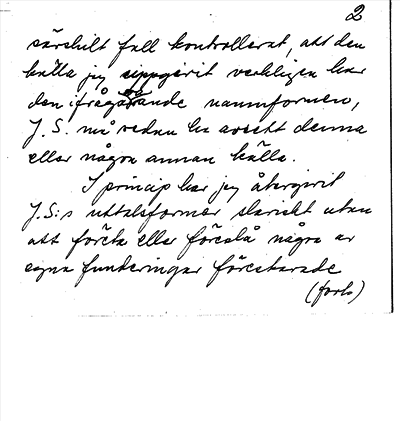 2
särskilt fall kontrollerat, att den
källa jag uppgivit verkligen har
den ifrågavarande namnformen,
J. S. må redan ha avsett denna
eller någon annan källa.
I princip har jag återgivit
J.S:s uttalsformer slaviskt utan
att förete eller föreslå några av
egna funderingar förestavade
(forts)